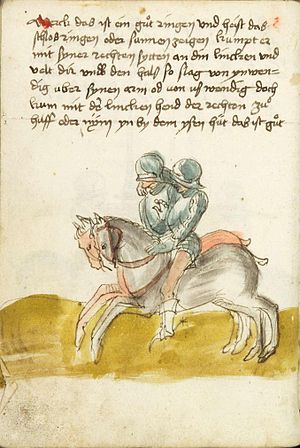 Merck das ist ein gůt ringen und heist das
schlos ringen oder sunnen zeigen kumpt er
mit syner rechten sytten an din lincken und
velt dir umb den hals so slag von ynwen-
dig über synen arm od von uswendig doch
kum mit der lincken hend der rechten zů
huff oder nym yn by dem ysen hůt das ist gůt